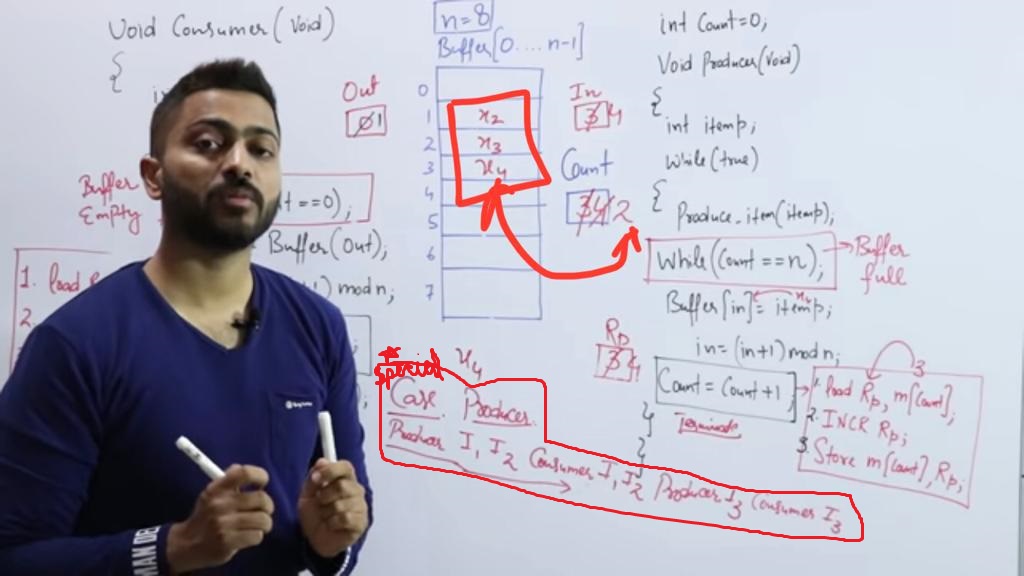 Void Consumer(Void)
{
Out
Ø 1
Buffer
Empty
t ==0);
Buffer(Out);
1) mod n;
1. load
2.
n=8
Buffer[0....n-1]
0
1 x2
2 x3
3 x4
4
5
6
7
In
3 4
Count
3 4 2
int Count=0;
Void Producer(Void)
{
int itemp;
while(true)
{
Produce_item(itemp);
while(Count ==n); → Buffer full
Buffer[in]= itemp;
in=(in+1)mod n;
Count = Count+1;
}
}
Terminate
3
1. load Rp, m[Count];
2. INCR Rp;
3. Store m[Count], Rp;
Rp
3 4
x4
* special
Case Producer
Producer I1, I2 Consumer I1, I2 Producer I3 Consumer I3
MAK DE